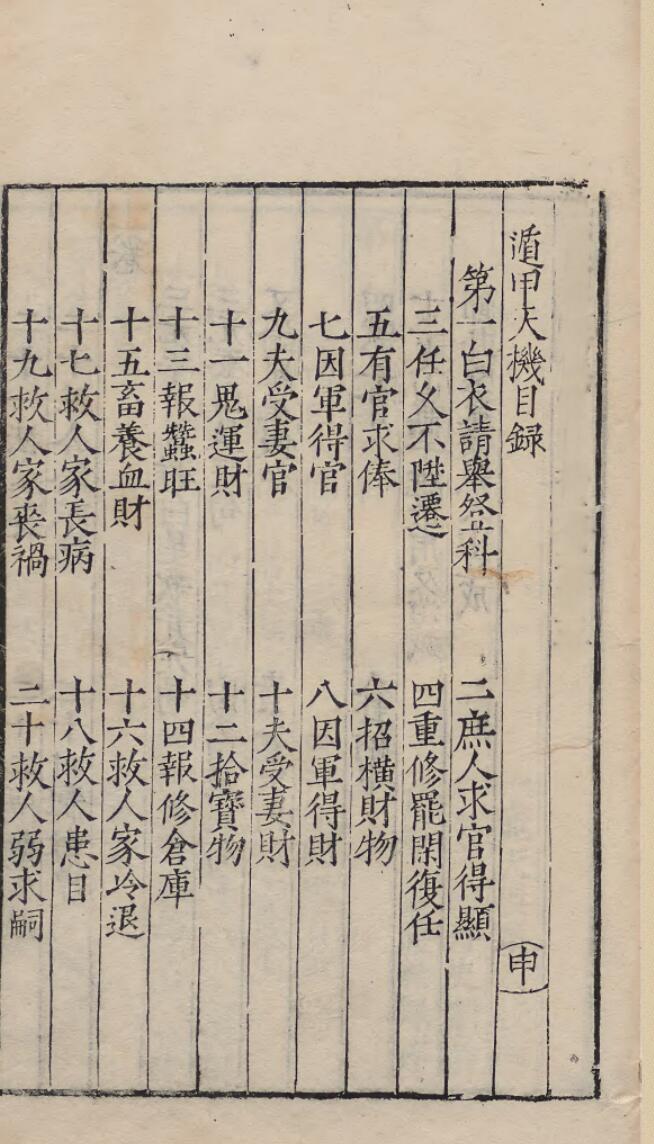 遁甲天機目録 申
第一白衣請舉登科 二庶人求官得顯
三任久不陞遷 四重修罷閑復任
五有官求俸 六招横財物
七因軍得官 八因軍得財
九夫受妻官 十夫受妻財
十一鬼運財 十二拾寳物
十三報蠶旺 十四報修倉庫
十五畜養血財 十六救人家冷退
十七救人家長病 十八救人患目
十九救人家喪禍 二十救人弱求嗣